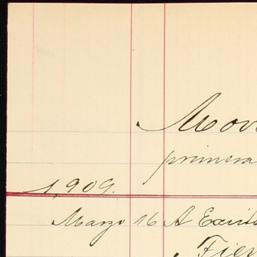 Mov
primera
1,909.
Marzo 16 A Exito
Fier